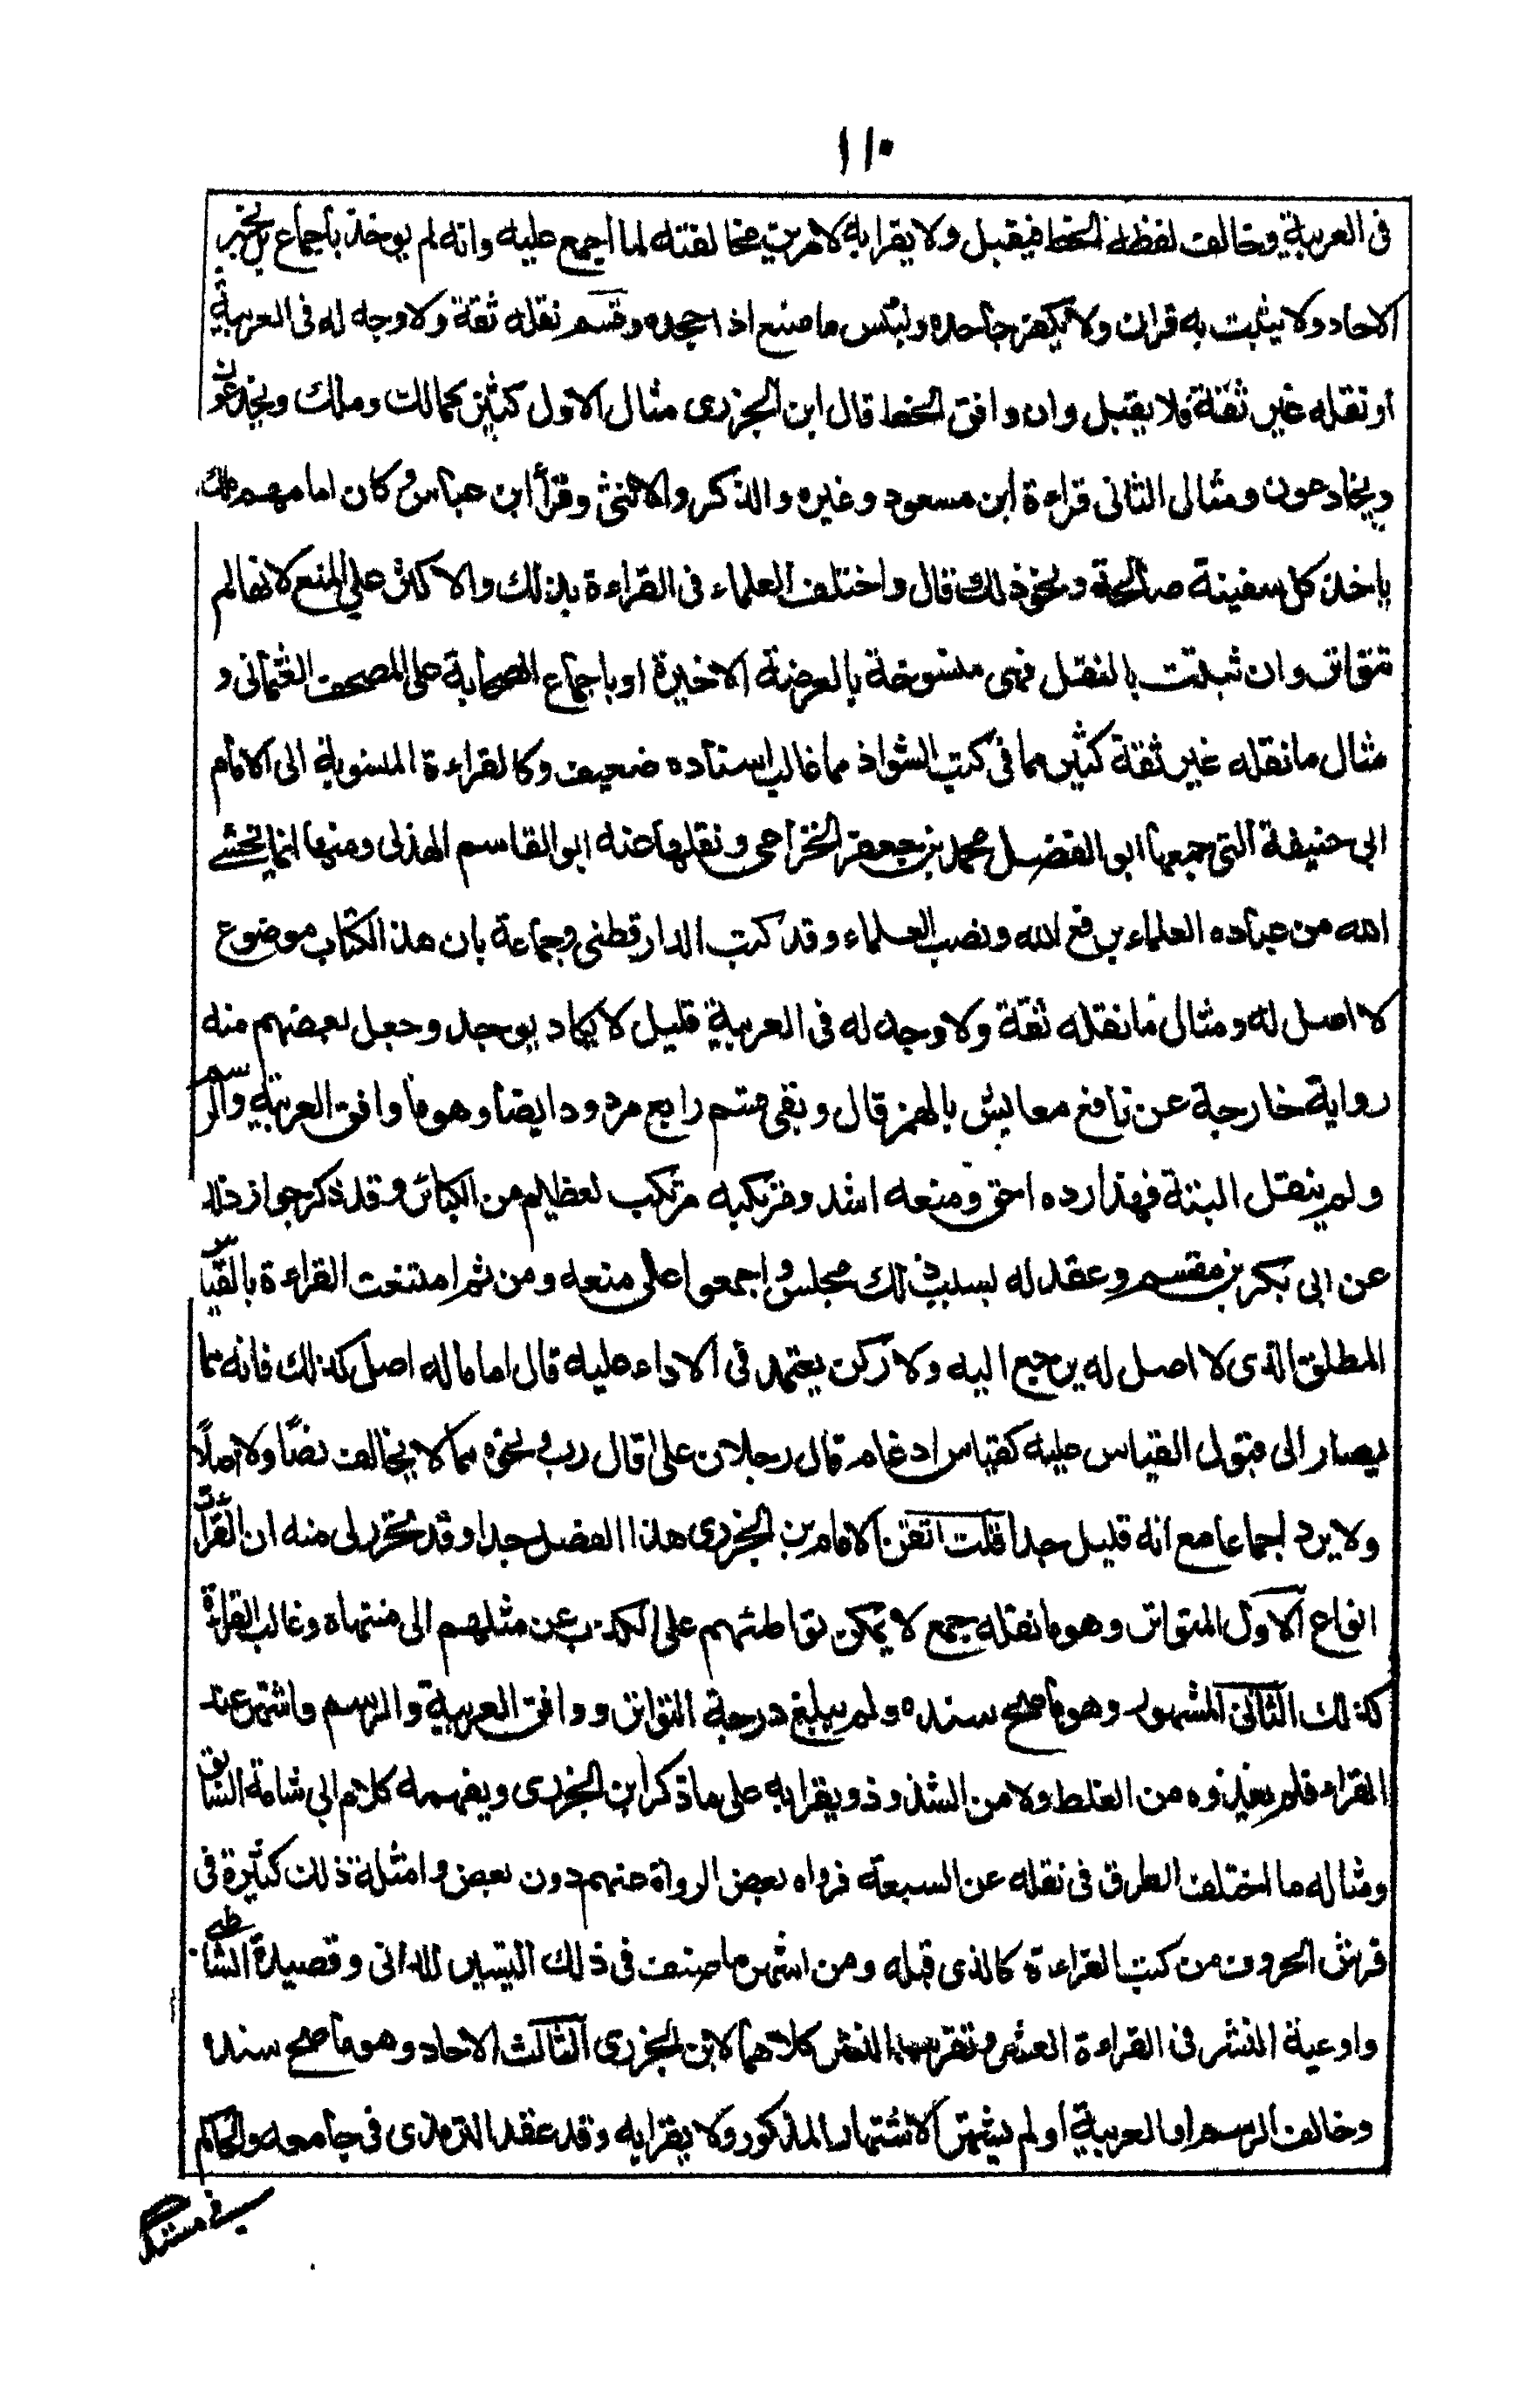 ١١٠
فى العربية وخالف لفظه الخط فيقبل ولا يقرا به لامرين مخالفته لما اجمع عليه وانه لم يوخذ باجماع بل بخبر
الاحاد ولا يثبت به قران ولا يكفر جاحده ولبئس ما صنع اذا جحده وقسم نقله ثقة ولا وجه له فى العربية
او نقله غير ثقة فلا يقبل وان وافق الخط قال ابن الجزرى مثال الاول كثير كمالك وملك ويخدعون
ويخادعون ومثال الثانى قراءة ابن مسعود وغيره والذكر والانثى وقرأ ابن عباس وكان امامهم ملك
ياخذ كل سفينة صالحة ونحو ذلك قال واختلف العلماء فى القراءة بذلك والاكثر على المنع لانها لم
تتواتر وان ثبتت بالنقل فهى منسوخة بالعرضة الاخيرة او باجماع الصحابة على المصحف العثمانى و
مثال ما نقله غير ثقة كثير مما فى كتب الشواذ مما غالب اسناده ضعيف وكالقراءة المنسوبة الى الامام
ابى حنيفة التى جمعها ابو الفضل محمد بن جعفر الخزاعى ونقلها عنه ابو القاسم الهذلى ومنها انما يخشى
الله من عباده العلماء برفع الله ونصب العلماء وقد كتب الدارقطنى وجماعة بان هذا الكتاب موضوع
لا اصل له ومثال ما نقله ثقة ولا وجه له فى العربية قليل لا يكاد يوجد وجعل بعضهم منه
رواية خارجة عن نافع معايش بالهمز قال وبقى قسم رابع مردود ايضا وهو ما وافق العربية والرسم
ولم ينقل البتة فهذا رده احق ومنعه اشد ومرتكبه مرتكب لعظيم من الكبائر وقد ذكر جواز ذلك
عن ابى بكر بن مقسم وعقد له بسبب ذلك مجلس واجمعوا على منعه ومن ثم امتنعت القراءة بالقياس
المطلق الذى لا اصل له يرجع اليه ولا ركن يعتمد فى الاداء عليه قال اما ما له اصل كذلك فانه مما
يصار الى قبول القياس عليه كقياس ادغام قال رجلان على قال رب ونحوه مما لا يخالف نصا ولا اصلا
ولا يرد اجماعا مع انه قليل جدا قلت اتقن الامام بن الجزرى هذا الفصل جدا وقد تحرر لى منه ان القراآت
انواع الاول المتواتر وهو ما نقله جمع لا يمكن تواطئهم على الكذب عن مثلهم الى منتهاه وغالب القراءة
كذلك الثانى المشهور وهو ما صح سنده ولم يبلغ درجة التواتر ووافق العربية والرسم واشتهر عند
القراء فلم يعدوه من الغلط ولا من الشذوذ ويقرا به على ما ذكر ابن الجزرى ويفهمه كلام ابى شامة السابق
ومثاله ما اختلف الطرق فى نقله عن السبعة فرواه بعض الرواة عنهم دون بعض وامثلة ذلك كثيرة فى
فرش الحروف من كتب القراءة كالذى قبله ومن اشهر ما صنف فى ذلك التيسير للدانى وقصيدة الشاطبى
واوعية النشر فى القراءة العشر وتقريب النشر كلاهما لابن الجزرى الثالث الاحاد وهو ما صح سنده
وخالف الرسم او العربية او لم يشتهر الاشتهار المذكور ولا يقرا به وقد عقد الترمذى فى جامعه والحاكم
فى مستدرك